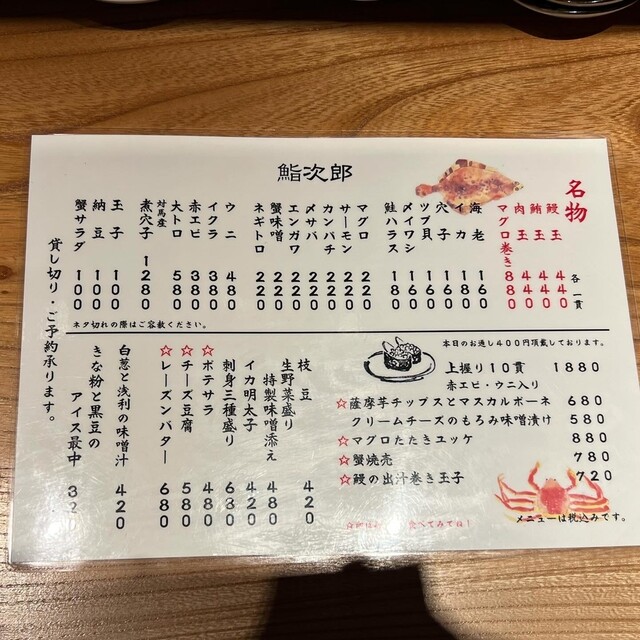 鮨次郎
名物
各一貫
鰻玉 440
鮪玉 440
肉玉 440
マグロ巻き 880
海老 160
イカ 160
穴子 160
ツブ貝 160
〆イワシ 160
鮭ハラス 180
マグロ 220
サーモン 220
カンパチ 220
〆サバ 220
エンガワ 220
蟹味噌 220
ネギトロ 220
ウニ 480
イクラ 380
赤エビ 380
大トロ 580
対馬産
煮穴子 1280
玉子 100
納豆 100
蟹サラダ 100
ネタ切れの際はご容赦ください。
貸し切り・ご予約承ります。
本日のお通し400円頂戴しております。
上握り10貫 1880
赤エビ・ウニ入り
☆薩摩芋チップスとマスカルポーネ 680
クリームチーズのもろみ味噌漬け 580
☆マグロたたきユッケ 880
☆蟹焼売 780
☆鰻の出汁巻き玉子 720
メニューは税込みです。
食べてみてね!
枝豆 420
生野菜盛り
特製味噌添え 480
イカ明太子 420
刺身三種盛り 630
☆ポテサラ 480
☆チーズ豆腐 580
☆レーズンバター 680
白葱と浅利の味噌汁 420
きな粉と黒豆の
アイス最中 320